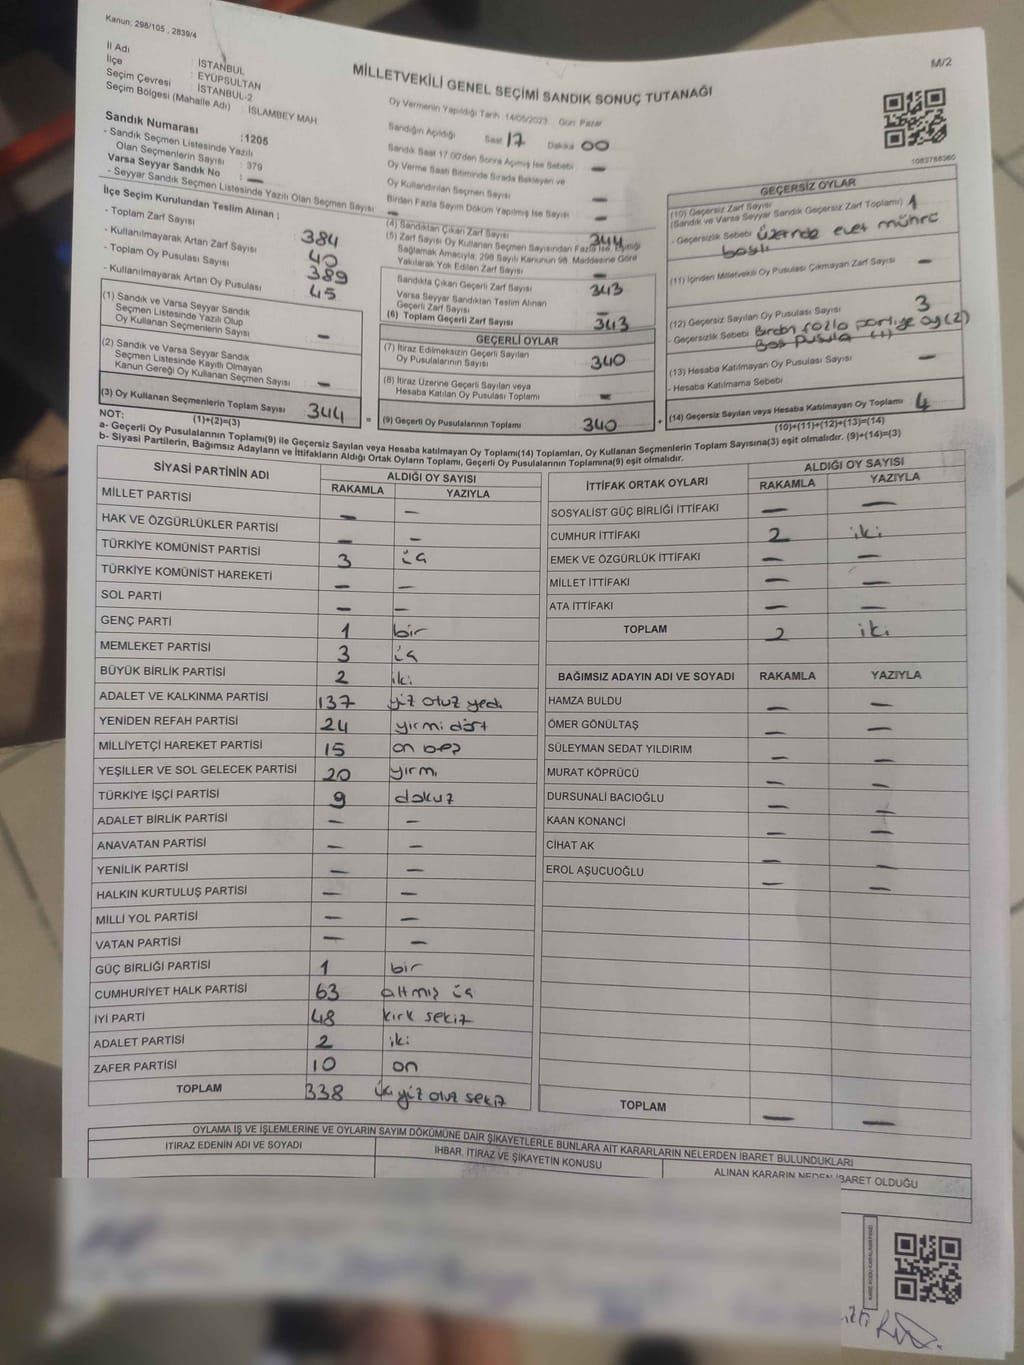 Kanun; 298/105 , 2839/4
M/2
MİLLETVEKİLİ GENEL SEÇİMİ SANDIK SONUÇ TUTANAĞI
İl Adı : İSTANBUL
İlçe : EYÜPSULTAN
Seçim Çevresi : İSTANBUL-2
Seçim Bölgesi (Mahalle Adı) : İSLAMBEY MAH
Sandık Numarası :1205
- Sandık Seçmen Listesinde Yazılı
Olan Seçmenlerin Sayısı : 379
Varsa Seyyar Sandık No : —
- Seyyar Sandık Seçmen Listesinde Yazılı Olan Seçmen Sayısı —
İlçe Seçim Kurulundan Teslim Alınan ;
- Toplam Zarf Sayısı 384
- Kullanılmayarak Artan Zarf Sayısı 40
- Toplam Oy Pusulası Sayısı 389
- Kullanılmayarak Artan Oy Pusulası 45
(1) Sandık ve Varsa Seyyar Sandık
Seçmen Listesinde Yazılı Olup
Oy Kullanan Seçmenlerin Sayısı —
(2) Sandık ve Varsa Seyyar Sandık
Seçmen Listesinde Kayıtlı Olmayan
Kanun Gereği Oy Kullanan Seçmen Sayısı —
(3) Oy Kullanan Seçmenlerin Toplam Sayısı 344
(1)+(2)=(3)
Oy Vermenin Yapıldığı Tarih : 14/05/2023 Gün: Pazar
Sandığın Açıldığı Saat 17 Dakika 00
Sandık Saat 17.00'den Sonra Açılmış İse Sebebi —
Oy Verme Saati Bitiminde Sırada Bekleyen ve
Oy Kullandırılan Seçmen Sayısı —
Birden Fazla Sayım Döküm Yapılmış İse Sayısı —
(4) Sandıktan Çıkan Zarf Sayısı 344
(5) Zarf Sayısı Oy Kullanan Seçmen Sayısından Fazla İse, Eşitliği
Sağlamak Amacıyla, 298 Sayılı Kanunun 98. Maddesine Göre
Yakılarak Yok Edilen Zarf Sayısı —
Sandıkta Çıkan Geçerli Zarf Sayısı 343
Varsa Seyyar Sandıktan Teslim Alınan
Geçerli Zarf Sayısı —
(6) Toplam Geçerli Zarf Sayısı 343
GEÇERLİ OYLAR
(7) İtiraz Edilmeksizin Geçerli Sayılan
Oy Pusulalarının Sayısı 340
(8) İtiraz Üzerine Geçerli Sayılan veya
Hesaba Katılan Oy Pusulası Toplamı —
= (9) Geçerli Oy Pusulalarının Toplamı 340
1083788360
GEÇERSİZ OYLAR
(10) Geçersiz Zarf Sayısı
(Sandık ve Varsa Seyyar Sandık Geçersiz Zarf Toplamı) 1
- Geçersizlik Sebebi üzerinde evet mührü
basılı
(11) İçinden Milletvekili Oy Pusulası Çıkmayan Zarf Sayısı —
(12) Geçersiz Sayılan Oy Pusulası Sayısı 3
- Geçersizlik Sebebi Birden fazla partiye oy (2)
Boş pusula (1)
(13) Hesaba Katılmayan Oy Pusulası Sayısı —
- Hesaba Katılmama Sebebi
+ (14) Geçersiz Sayılan veya Hesaba Katılmayan Oy Toplamı 4
(10)+(11)+(12)+(13)=(14)
NOT:
a- Geçerli Oy Pusulalarının Toplamı(9) ile Geçersiz Sayılan veya Hesaba katılmayan Oy Toplamı(14) Toplamları, Oy Kullanan Seçmenlerin Toplam Sayısına(3) eşit olmalıdır. (9)+(14)=(3)
b- Siyasi Partilerin, Bağımsız Adayların ve İttifakların Aldığı Ortak Oyların Toplamı, Geçerli Oy Pusulalarının Toplamına(9) eşit olmalıdır.
SİYASİ PARTİNİN ADI ALDIĞI OY SAYISI
RAKAMLA YAZIYLA
MİLLET PARTİSİ — —
HAK VE ÖZGÜRLÜKLER PARTİSİ — —
TÜRKİYE KOMÜNİST PARTİSİ 3 üç
TÜRKİYE KOMÜNİST HAREKETİ — —
SOL PARTİ — —
GENÇ PARTİ 1 bir
MEMLEKET PARTİSİ 3 üç
BÜYÜK BİRLİK PARTİSİ 2 iki
ADALET VE KALKINMA PARTİSİ 137 yüz otuz yedi
YENİDEN REFAH PARTİSİ 24 yirmi dört
MİLLİYETÇİ HAREKET PARTİSİ 15 on beş
YEŞİLLER VE SOL GELECEK PARTİSİ 20 yirmi
TÜRKİYE İŞÇİ PARTİSİ 9 dokuz
ADALET BİRLİK PARTİSİ — —
ANAVATAN PARTİSİ — —
YENİLİK PARTİSİ — —
HALKIN KURTULUŞ PARTİSİ — —
MİLLİ YOL PARTİSİ — —
VATAN PARTİSİ — —
GÜÇ BİRLİĞİ PARTİSİ 1 bir
CUMHURİYET HALK PARTİSİ 63 altmış üç
İYİ PARTİ 48 kırk sekiz
ADALET PARTİSİ 2 iki
ZAFER PARTİSİ 10 on
TOPLAM 338 üç yüz otuz sekiz
İTTİFAK ORTAK OYLARI ALDIĞI OY SAYISI
RAKAMLA YAZIYLA
SOSYALİST GÜÇ BİRLİĞİ İTTİFAKI — —
CUMHUR İTTİFAKI 2 iki
EMEK VE ÖZGÜRLÜK İTTİFAKI — —
MİLLET İTTİFAKI — —
ATA İTTİFAKI — —
TOPLAM 2 iki
BAĞIMSIZ ADAYIN ADI VE SOYADI RAKAMLA YAZIYLA
HAMZA BULDU — —
ÖMER GÖNÜLTAŞ — —
SÜLEYMAN SEDAT YILDIRIM — —
MURAT KÖPRÜCÜ — —
DURSUNALİ BACIOĞLU — —
KAAN KONANCİ — —
CİHAT AK — —
EROL AŞUCUOĞLU — —
TOPLAM — —
OYLAMA İŞ VE İŞLEMLERİNE VE OYLARIN SAYIM DÖKÜMÜNE DAİR ŞİKAYETLERLE BUNLARA AİT KARARLARIN NELERDEN İBARET BULUNDUKLARI
İTİRAZ EDENİN ADI VE SOYADI
İHBAR, İTİRAZ VE ŞİKAYETİN KONUSU
ALINAN KARARIN NEDEN İBARET OLDUĞU